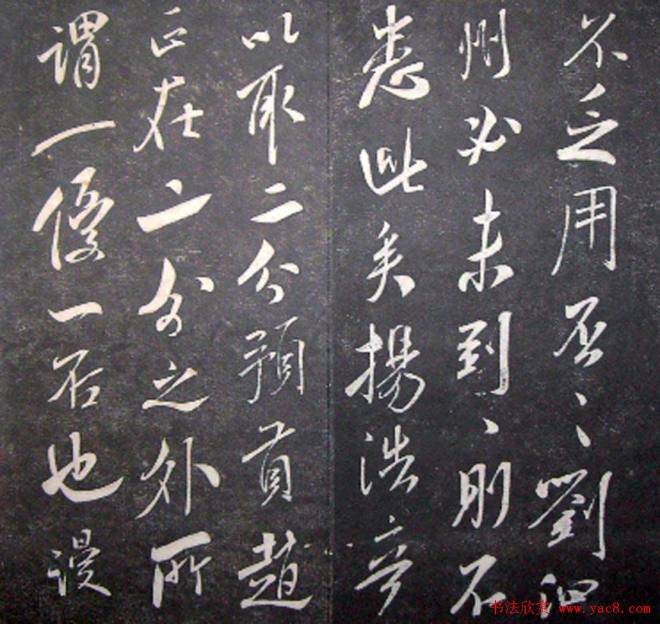 不乏用否〻劉泗
州必未到〻則不
悉此矣揚浩
以取二分預趙
正在二分之外所
謂一優一否也漫
书法欣赏 www.yac8.com